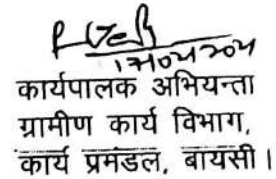 कार्यपालक अभियन्ता
ग्रामीण कार्य विभाग,
कार्य प्रमंडल, बायसी।